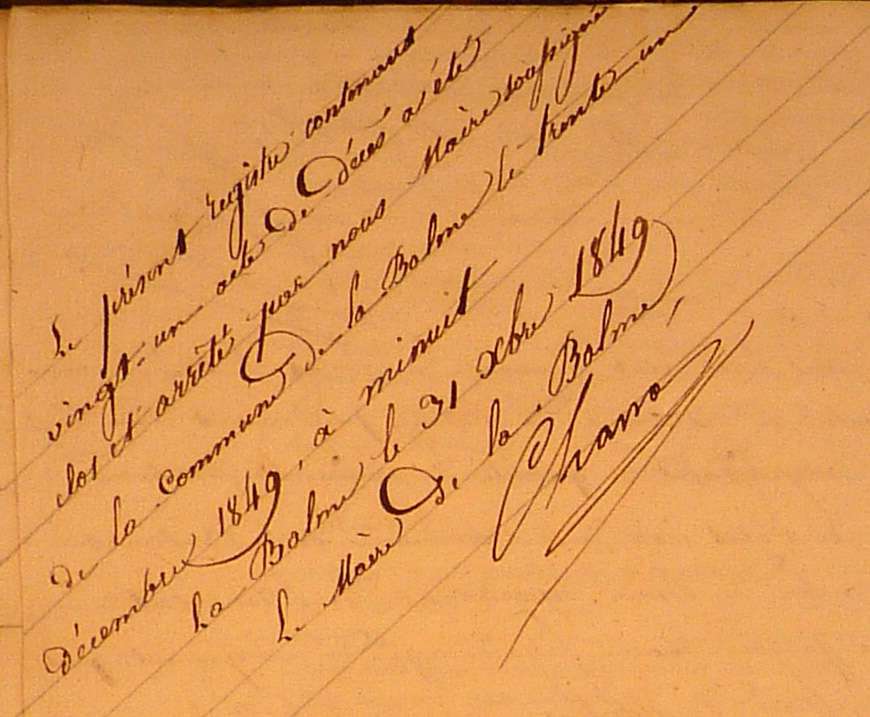 Le présent registre contenant
vingt-un acte de décès a été
clos et arrêté par nous Maire soussigné
de la Commune de la Balme le trente-un
décembre 1849, à minuit
La Balme le 31 Xbre 1849
Le Maire de la Balme,